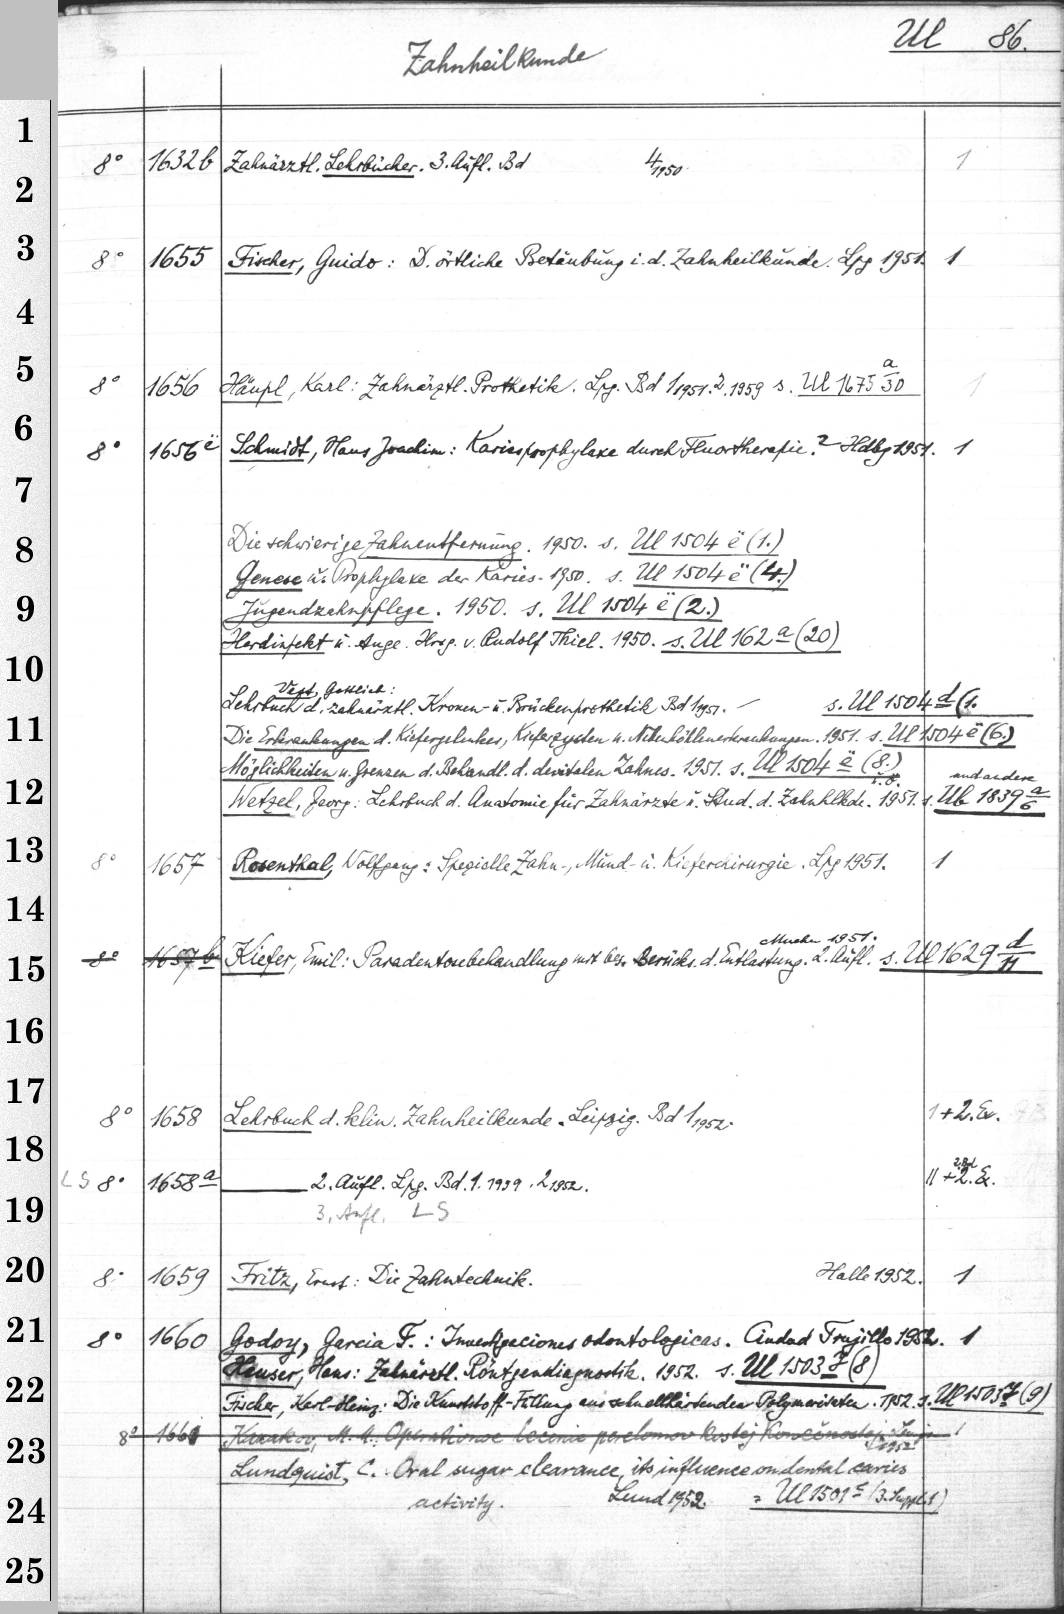 Ul 86.
Zahnheilkunde
1
8° 1632b Zahnärztl. Lehrbücher. 3. Aufl. Bd 4 1950. 1
2
3
8° 1655 Fischer, Guido: D. örtliche Betäubung i. d. Zahnheilkunde. Lpg 1951. 1
4
5
8° 1656 Häupl, Karl: Zahnärztl. Prothetik. Lpg. Bd 1 1951. 2. 1959 s. Ul 1675 a/30 1
6
8° 1656 ë Schmidt, Hans Joachim: Kariesprophylaxe durch Fluortherapie. 2 Hdbg 1951. 1
7
8 Die schwierige Zahnentfernung. 1950. s. Ul 1504 ë (1.)
Genese u. Prophylaxe der Karies. 1950. s. Ul 1504 ë (4.)
9 Jugendzahnpflege. 1950. s. Ul 1504 ë (2.)
Herdinfekt u. Auge. Hrsg. v. Rudolf Thiel. 1950. s. Ul 162 a (20)
10
Vest, Gottlieb:
Lehrbuch d. zahnärztl. Kronen- u. Brückenprothetik Bd 1 1951. – s. Ul 1504 d (1.
11 Die Erkrankungen d. Kiefergelenkes, Kieferzysten u. Nebenhöhlenerkrankungen. 1951. s. Ul 1504 ë (6.)
Möglichkeiten u. Grenzen d. Behandl. d. devitalen Zahnes. 1951. s. Ul 1504 ë (8.)
und andere
12 Wetzel, Georg: Lehrbuch d. Anatomie für Zahnärzte u. Stud. d. Zahnhlkde. 1951. s. Ub 1839 a/6
13
8° 1657 Rosenthal, Wolfgang: Spezielle Zahn-, Mund- u. Kieferchirurgie. Lpg 1951. 1
14
Muchn 1951.
15 8° 1657 b Kiefer, Emil: Paradentosebehandlung mit bes. Berücks. d. Entlastung. 2. Aufl. s. Ul 1629 d/11
16
17
8° 1658 Lehrbuch d. klin. Zahnheilkunde. Leipzig. Bd 1 1952. 1 + 2. Ex.
18
LS 8° 1658 a 2. Aufl. Lpg. Bd. 1. 1939. 2 1952. II + 2. Ex.
19 3. Aufl. LS
20 8° 1659 Fritz, Ernst: Die Zahntechnik. Halle 1952. 1
21 8° 1660 Godoy, Garcia F.: Investigaciones odontologicas. Ciudad Trujillo 1952. 1
Heuser, Hans: Zahnärztl. Röntgendiagnostik. 1952. s. Ul 1503 z (8)
22 Fischer, Karl-Heinz: Die Kunststoff-Füllung aus schnellhärtenden Polymerisaten. 1952. s. Ul 1503 z (9)
8° 1661 M. A. Operativnoe lečenie perelomov kostej konečnostej. 1952 1
23 Lundquist, C.: Oral sugar clearance, its influence on dental caries
24 activity. Lund 1952. = Ul 1501 c (3. Suppl. 1)
25